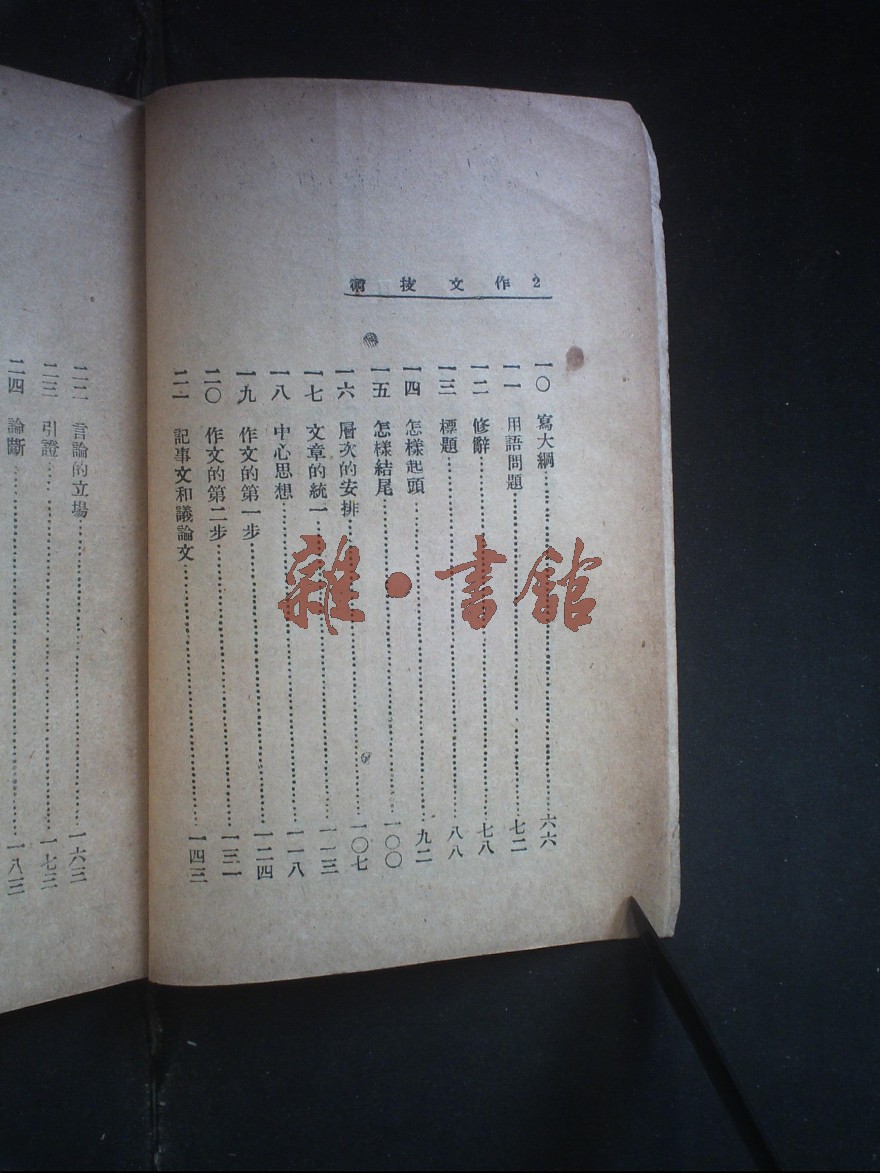 2 作文技術
一〇 寫大綱……六六
一一 用語問題……七二
一二 修辭……七八
一三 標題……八八
一四 怎樣起頭……九二
一五 怎樣結尾……一〇〇
一六 層次的安排……一〇七
一七 文章的統一……一一三
一八 中心思想……一一八
一九 作文的第一步……一二四
二〇 作文的第二步……一三二
二一 記事文和議論文……一四三
二二 言論的立場……一六三
二三 引證……一七三
二四 論斷……一八三
雜·書館